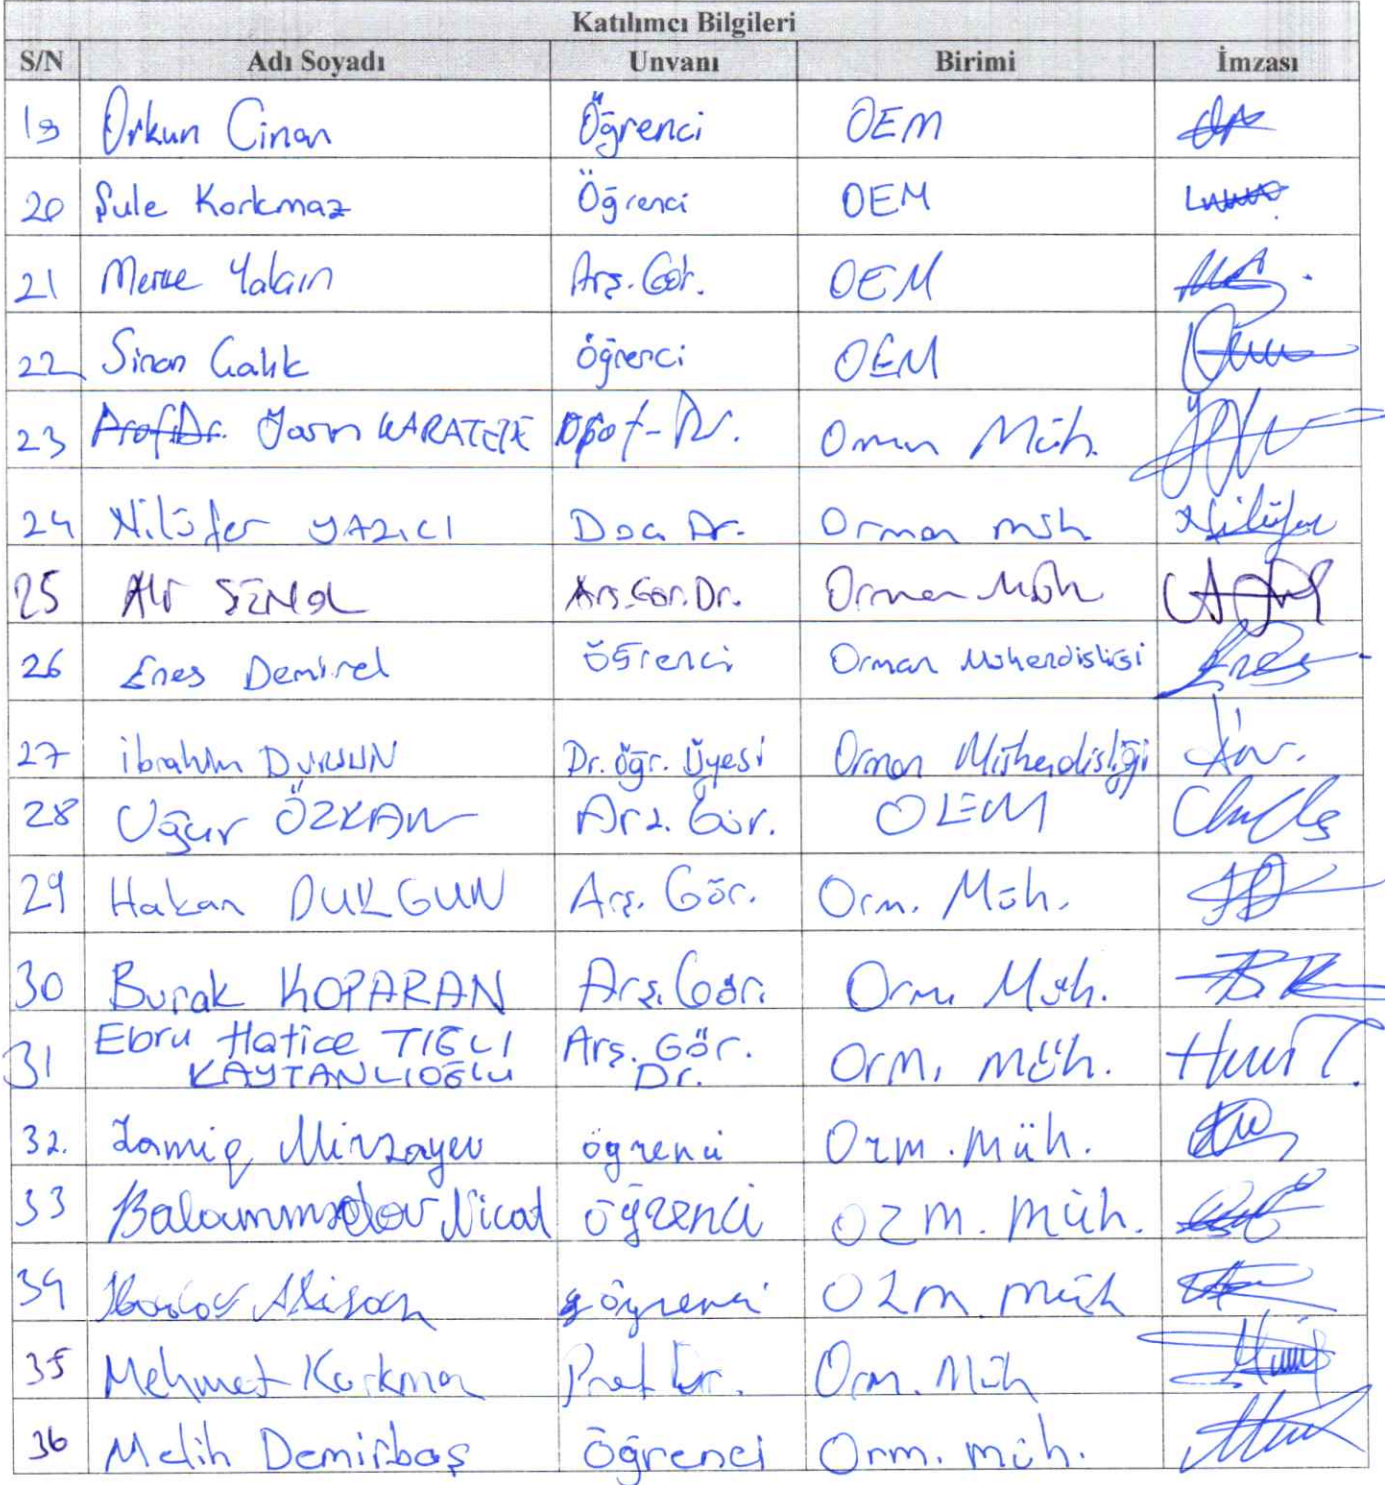 Katılımcı Bilgileri
S/N Adı Soyadı Unvanı Birimi İmzası
19 Orkun Cinan Öğrenci OEM
20 Şule Korkmaz Öğrenci OEM
21 Merve Yalçın Arş. Gör. OEM
22 Sinan Çalık öğrenci OEM
23 Prof.Dr. Yasin KARATEPE Prof. Dr. Orman Müh.
24 Nilüfer YAZICI Doç. Dr. Orman müh Nilüfer
25 Ali ŞENOL Arş.Gör.Dr. Orman Müh
26 Enes Demirel öğrenci Orman Mühendisliği Enes
27 ibrahim DURSUN Dr. öğr. Üyesi Orman Mühendisliği
28 Uğur ÖZKAN Arş. Gör. OLEM
29 Hakan DULGUN Arş. Gör. Orm. Müh.
30 Burak KOPARAN Arş. Gör. Orm. Müh.
31 Ebru Hatice TIĞLI Arş. Gör. Orm. Müh.
KAYTANLIOĞLU Dr.
32. Zamiq Mirzayev öğrenci Orm. Müh.
33 Nicat öğrenci Orm. Müh.
34 öğrenci Orm. Müh
35 Mehmet Korkmaz Prof. Dr. Orm. Müh
36 Melih Demirbaş Öğrenci Orm. müh.